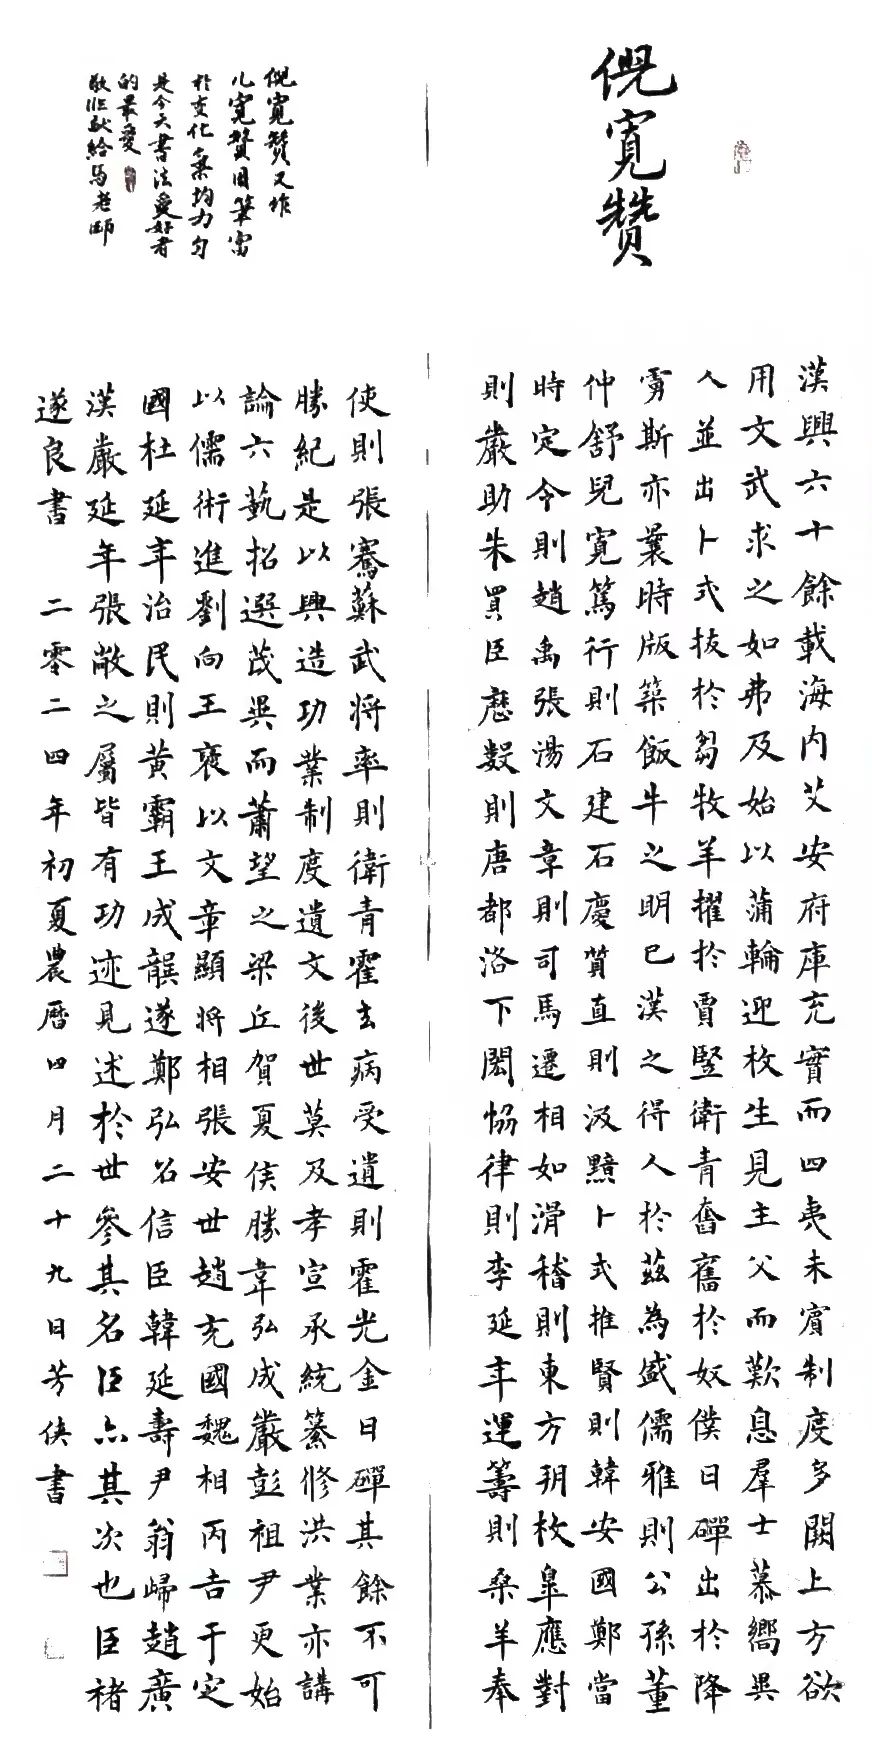 倪寬贊
漢興六十餘載海内艾安府庫充實而四夷未賓制度多闕上方欲
用文武求之如弗及始以蒲輪迎枚生見主父而歎息羣士慕嚮異
人並出卜式拔於芻牧羊擢於賈豎衛青奮舊於奴僕日磾出於降
虜斯亦曩時版築飯牛之明已漢之得人於茲為盛儒雅則公孫董
仲舒兒寬篤行則石建石慶質直則汲黯卜式推賢則韓安國鄭當
時定令則趙禹張湯文章則司馬遷相如滑稽則東方朔枚皐應對
則嚴助朱買臣歷數則唐都洛下閎恊律則李延年運籌則桑羊奉
使則張騫蘇武將率則衛青霍去病受遺則霍光金日磾其餘不可
勝紀是以興造功業制度遺文後世莫及孝宣承統纂修洪業亦講
論六藝招選茂異而蕭望之梁丘賀夏侯勝韋弘成嚴彭祖尹更始
以儒術進劉向王褒以文章顯將相張安世趙充國魏相丙吉于定
國杜延年治民則黄霸王成龔遂鄭弘召信臣韓延壽尹翁歸趙廣
漢嚴延年張敞之屬皆有功迹見述於世參其名臣亦其次也臣褚
遂良書 二零二四年初夏農曆四月二十九日芳侠書
倪寛贊又作
儿寛贊用筆富
於变化柔均力匀
是今天書法爱好者
的最爱
敬临献给马老師